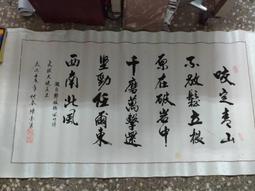 咬定青山
不放鬆立根
原在破岩中
千磨萬擊還
堅勁任爾東
西南北風